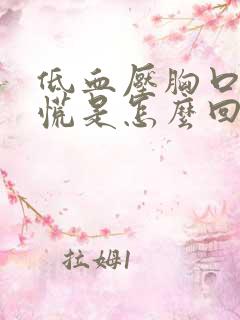 低血壓胸口
慌是怎麼回
拉姆1